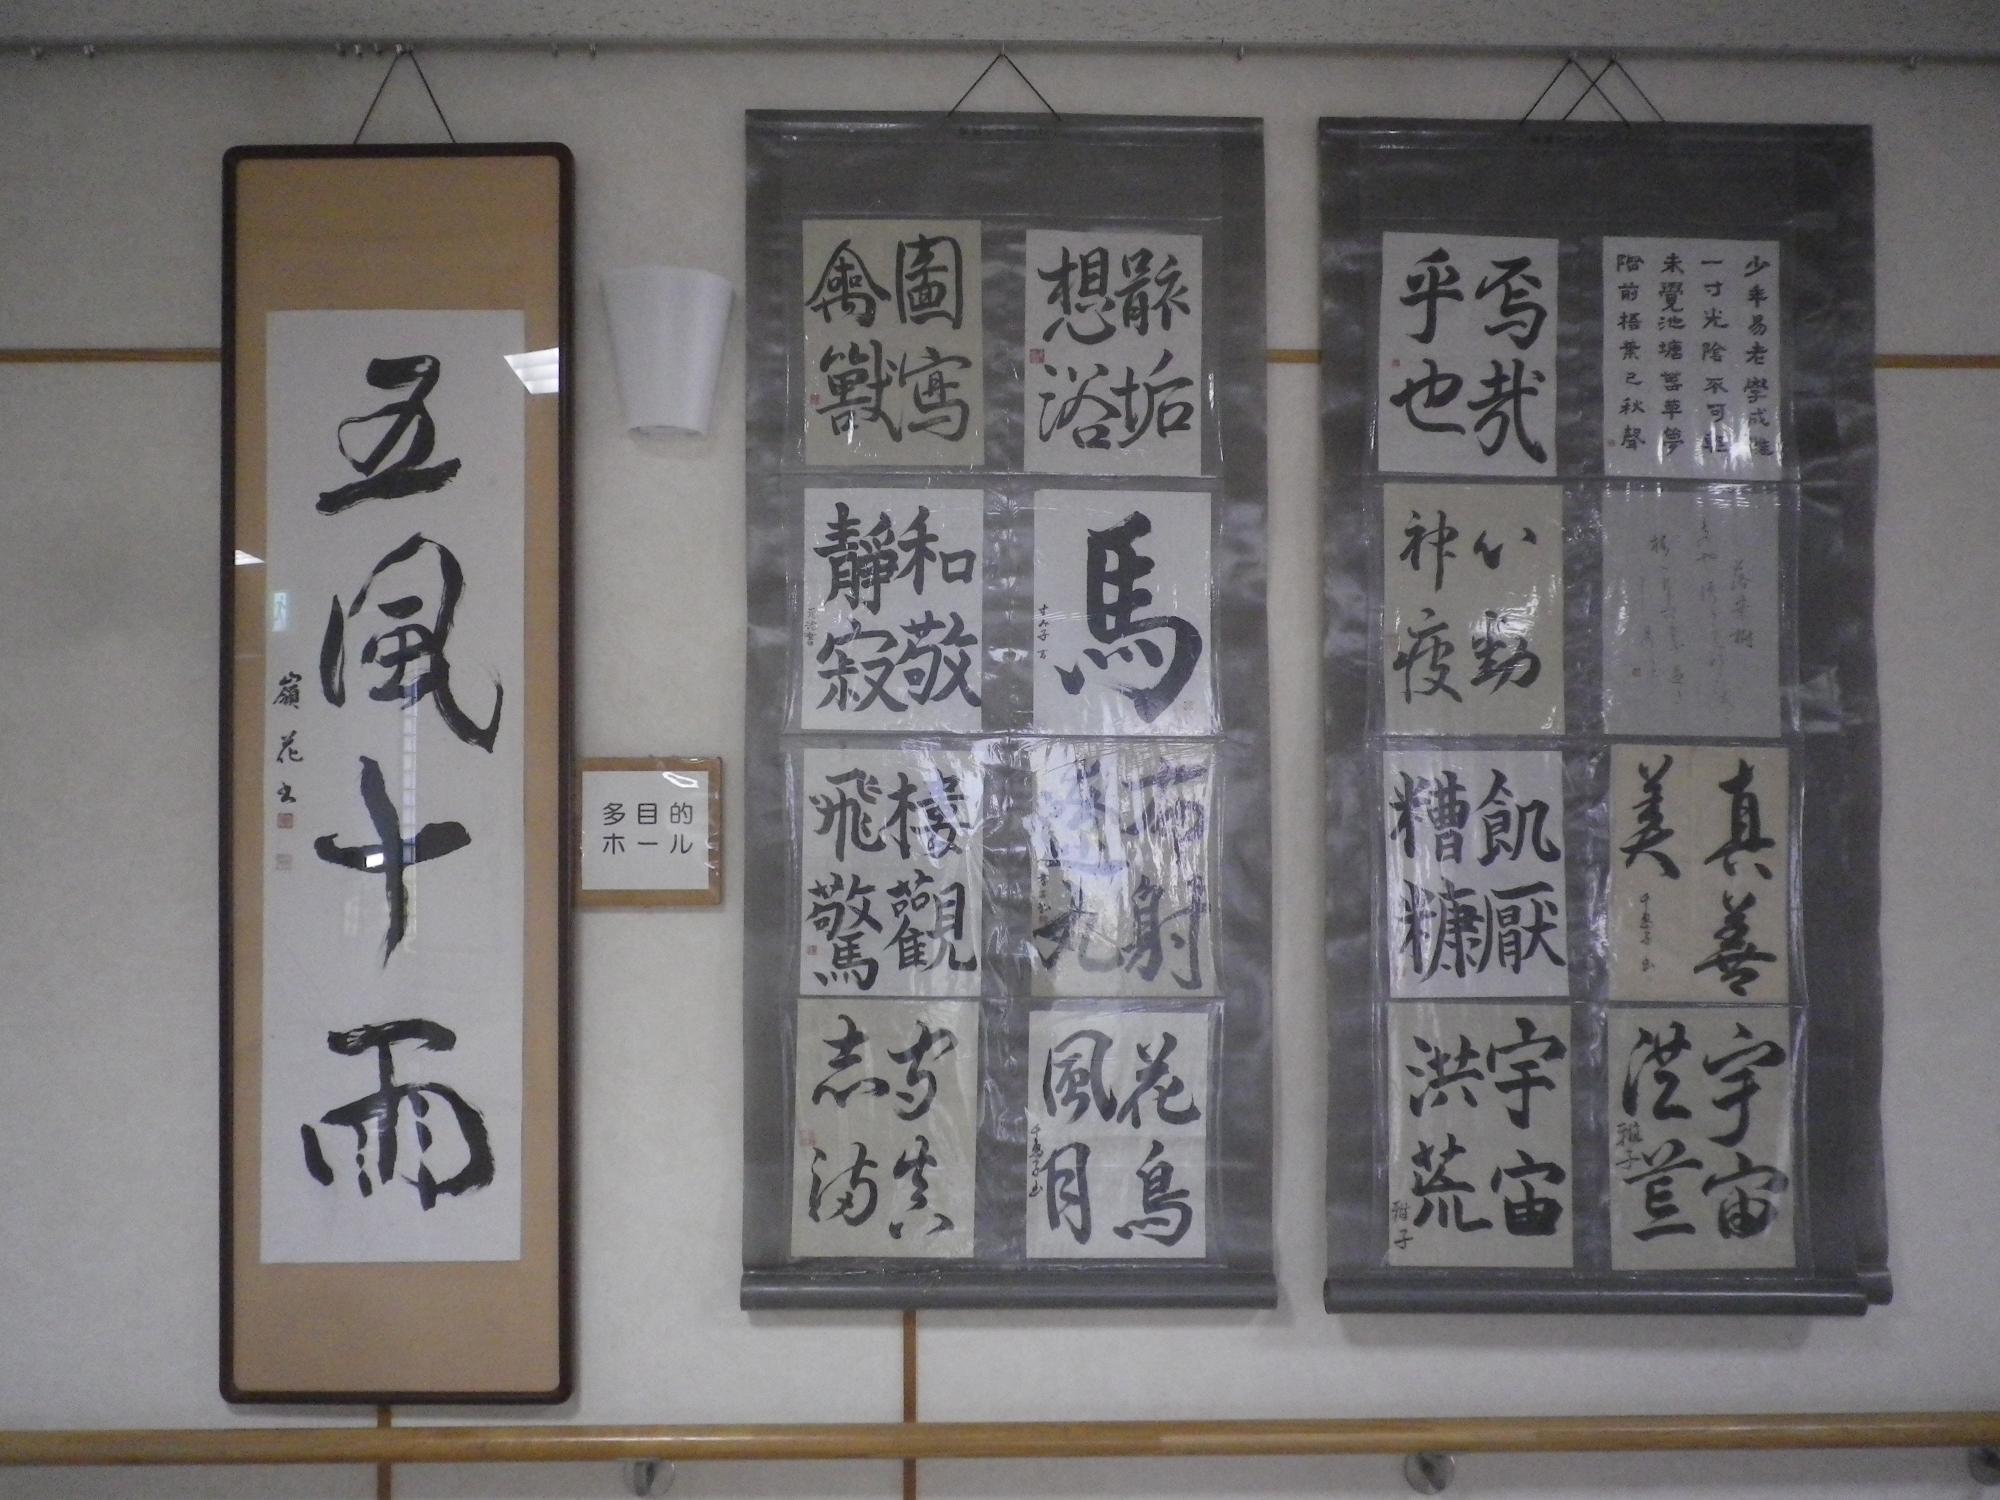 五風十雨
嶺花書
多目的
ホール
圖寫
禽獸
骸垢
想浴
和敬
靜寂
馬
樓觀
飛驚
守真
志満
花鳥
風月
千恵子書
焉哉
乎也
少年易老學成難
一寸光陰不可軽
未覺池塘春草夢
階前梧葉已秋聲
心動
神疲
飢厭
糟糠
真善
美
千恵子書
宇宙
洪荒
雅子
宇宙
洪荒
雅子